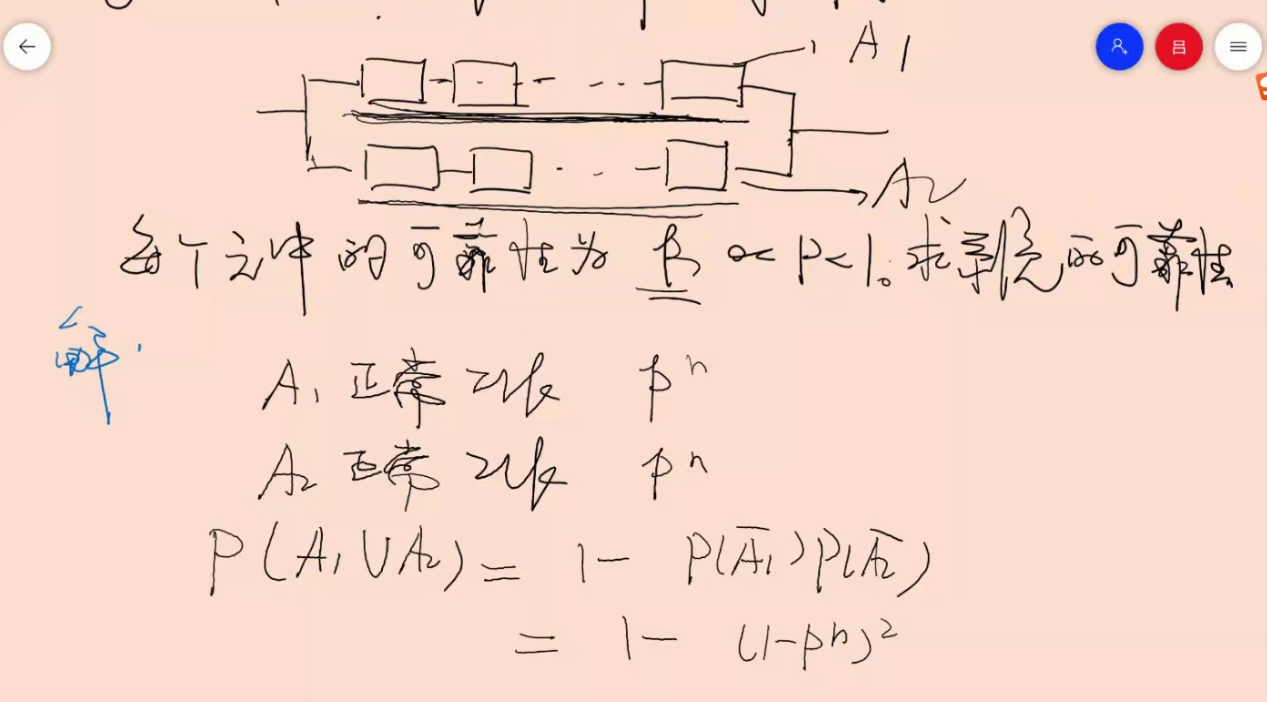 A1
A2
每个元件的可靠性为 P, 0<P<1。求系统的可靠性
解
A1 正常工作 p^n
A2 正常工作 p^n
P(A1∪A2) = 1- P(A̅1)P(A̅2)
= 1- (1-p^n)^2
吕